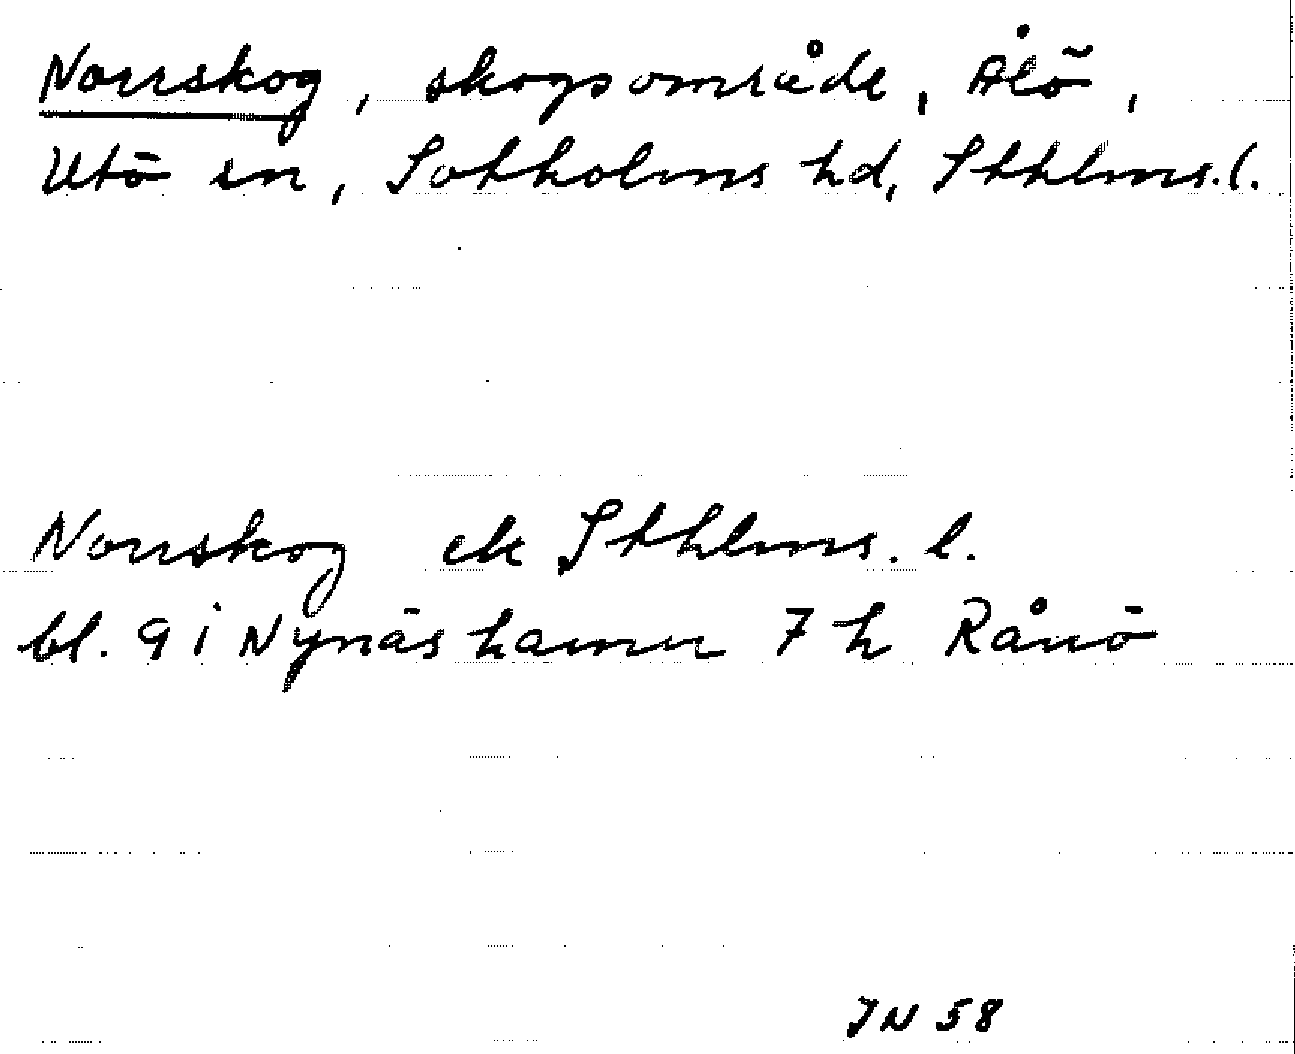 Norrskog, skogsområde, Ålö,
Utö sn, Sotholms hd, Sthlms.l.
Norrskog ek Sthlms. l.
bl. 9 i Nynäshamn 7 h Rånö
JN 58